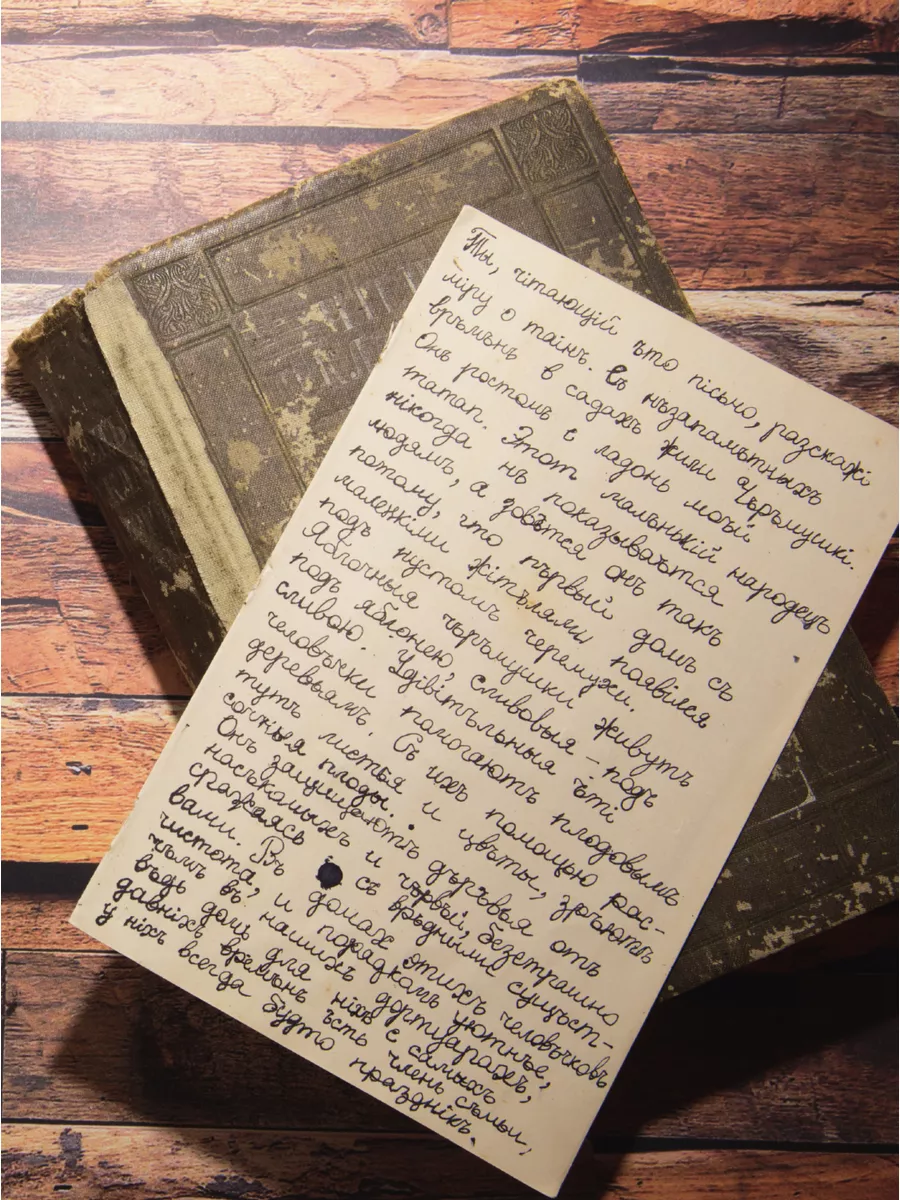 Ты, чітающій ѣто пісьмо, разскажі
міру о таінѣ. Съ нѣзапамѣтныхъ
врѣмѣнъ в садахъ жили чѣрѣмушкі.
Онѣ ростомъ с ладонь моѣй
maman. Этот малѣнький народецъ
нікогда нѣ показываются
людямъ, а зовѣтся онъ такъ
потому, что пѣрвый домъ съ
маленкіми жітѣлями появілся
подъ кустомъ черемухи.
Яблочныя чѣрѣмушки живутъ
подъ яблонею, сливовыя – подъ
сливою. Удівітѣльныя ѣті
человѣчки помогаютъ плодовымъ
деревьям. Съ ихъ помощью рас-
тутъ листья и цвѣты, зрѣютъ
сочныя плоды.
Онѣ защищаютъ дѣрѣвья отъ
насѣкомыхъ и чѣрвѣй, безстрашно
сражаясь съ врѣдными сущѣст-
вами. Въ домах этихъ человѣчковъ
чистота, и порядкомъ уютнѣе,
чѣмъ въ нашихъ дортуарахъ,
вѣдь домъ для ніхъ с самыхъ
давніхъ врѣмѣнъ ѣсть членъ сѣмьи,
у ніхъ всегда будто празднікъ.